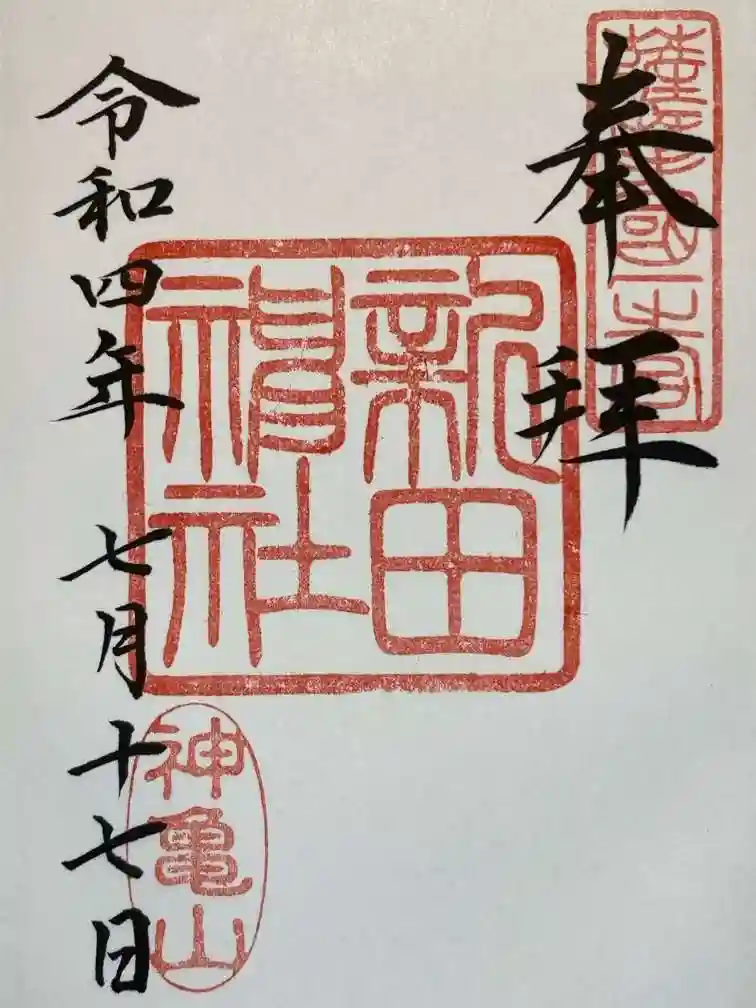 薩摩國一之宮
奉拝
新田神社
令和四年 七月十七日
神亀山